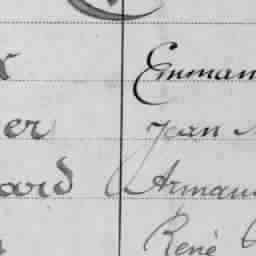 Emman
er Jean
ard Arman
René